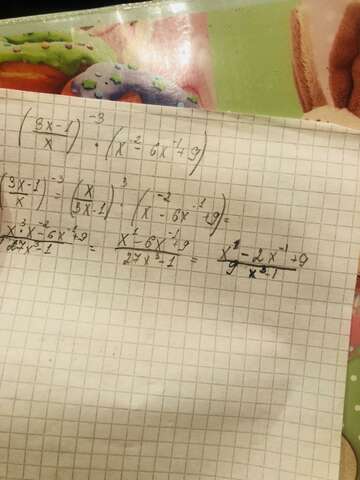 ((3x-1)/x)^-3 · (x^-2 - 6x^-1 + 9)
((3x-1)/x)^-3 = (x/(3x-1))^3 · (x^-2 - 6x^-1 + 9) =
(x^3 · x^-2 - 6x^-1 + 9)/(27x^3 - 1) = (x^1 - 6x^-1 + 9)/(27x^3 - 1) = (x^1 - 2x^-1 + 9)/(9 x^3 - 1)